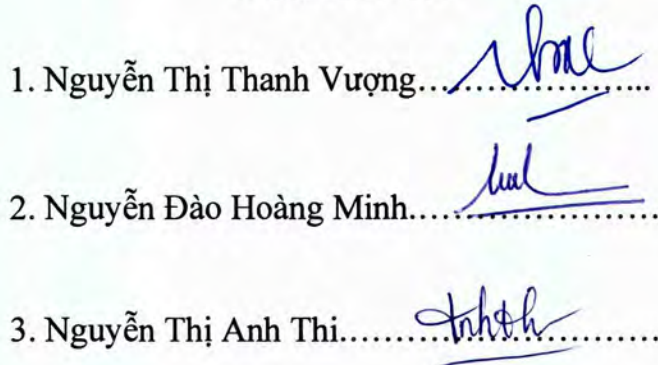 1. Nguyễn Thị Thanh Vượng.....................
2. Nguyễn Đào Hoàng Minh.......................
3. Nguyễn Thị Anh Thi..............................